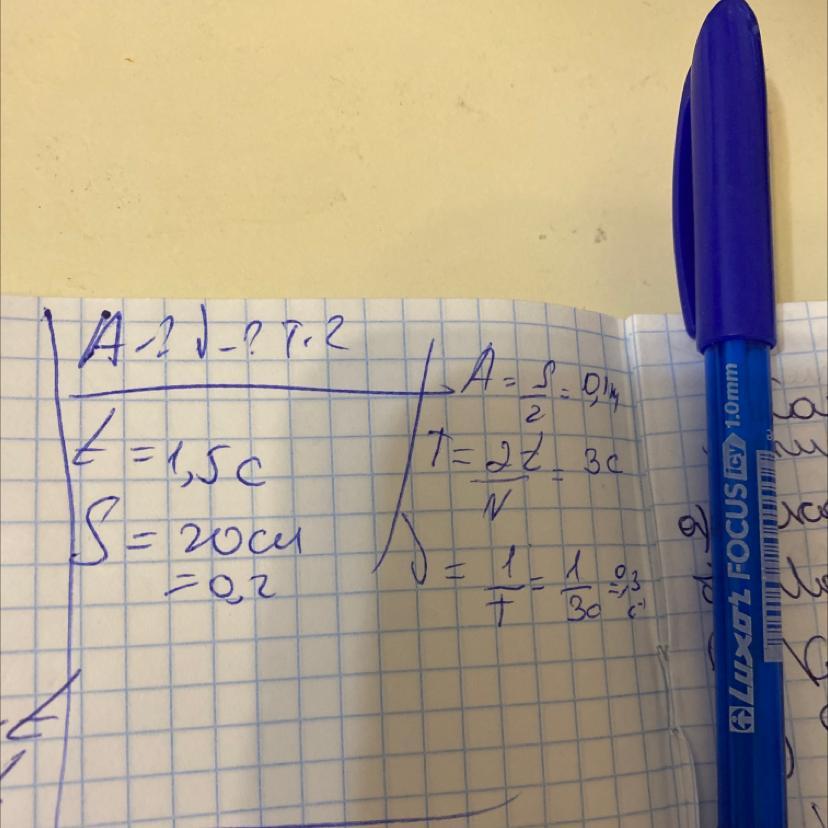 A - ? ν - ? T - ?
t = 1,5 с
S = 20 см
= 0,2
A = S/2 = 0,1м
T = 2t/N = 3с
ν = 1/T = 1/3с = 0,3 с⁻¹
Luxor FOCUS icy 1.0mm